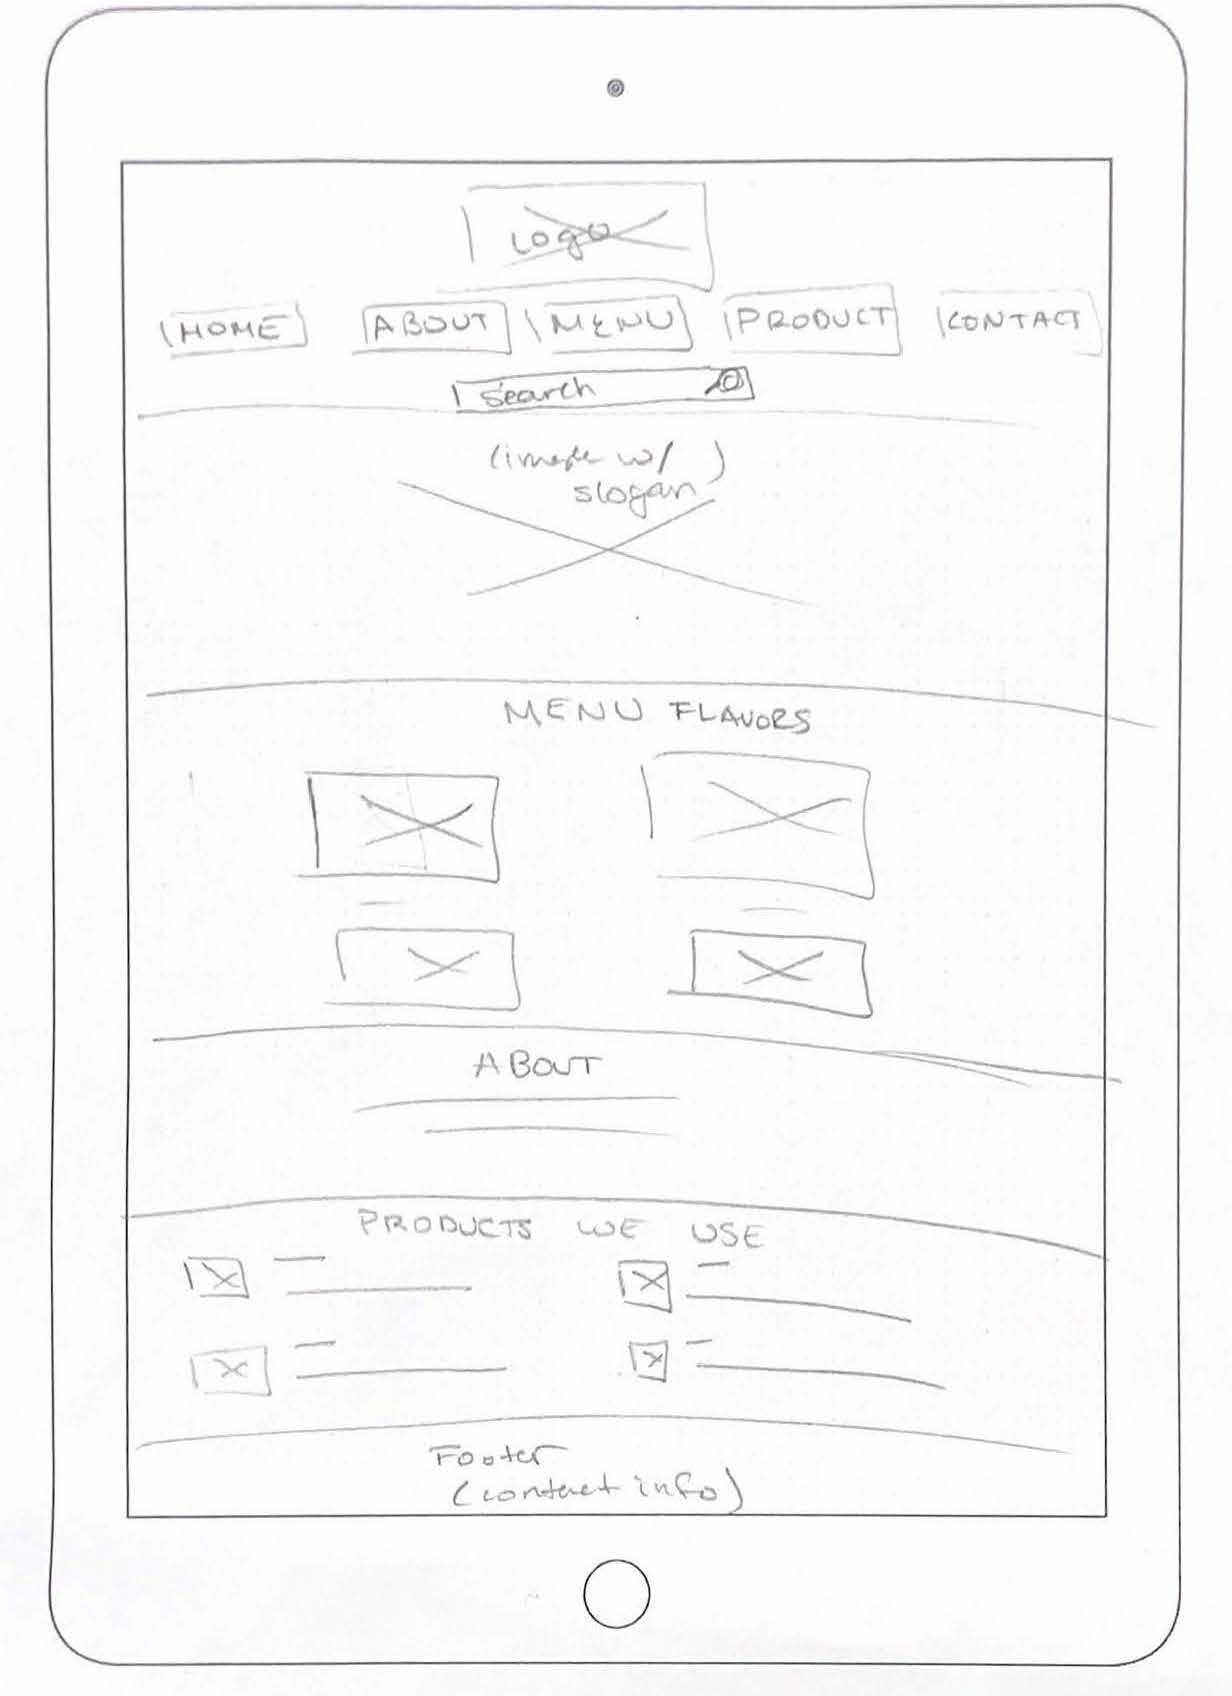 Logo
HOME ABOUT MENU PRODUCT CONTACT
search
(image w/ )
slogan
MENU FLAVORS
ABOUT
PRODUCTS WE USE
Footer
(contact info)